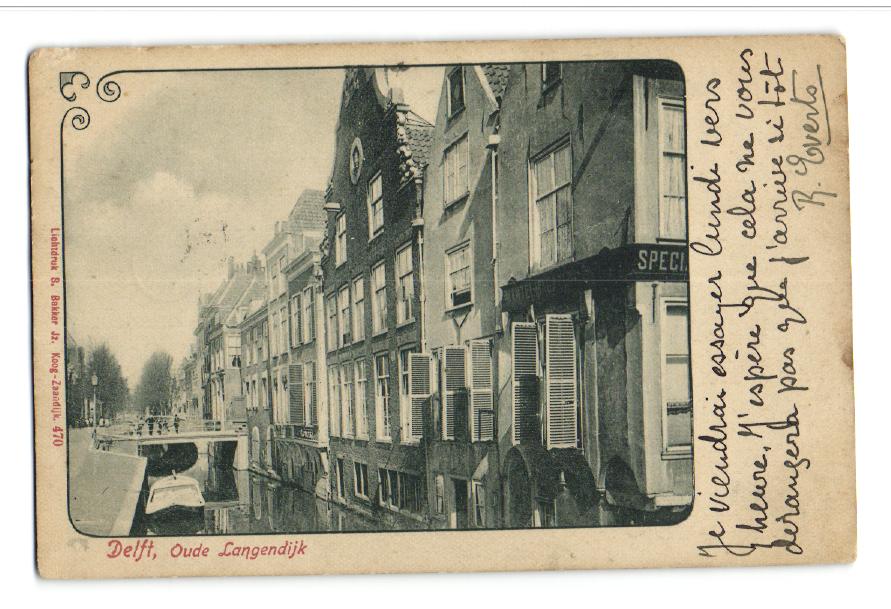 Je viendrai essayer lundi vers
9 heure, J'espère que cela ne vous
dérangera pas que j'arrive si tôt
R. Everts
SPECI
Lichtdruk B. Bakker Jz. Koog-Zaandijk. 470
Delft, Oude Langendijk